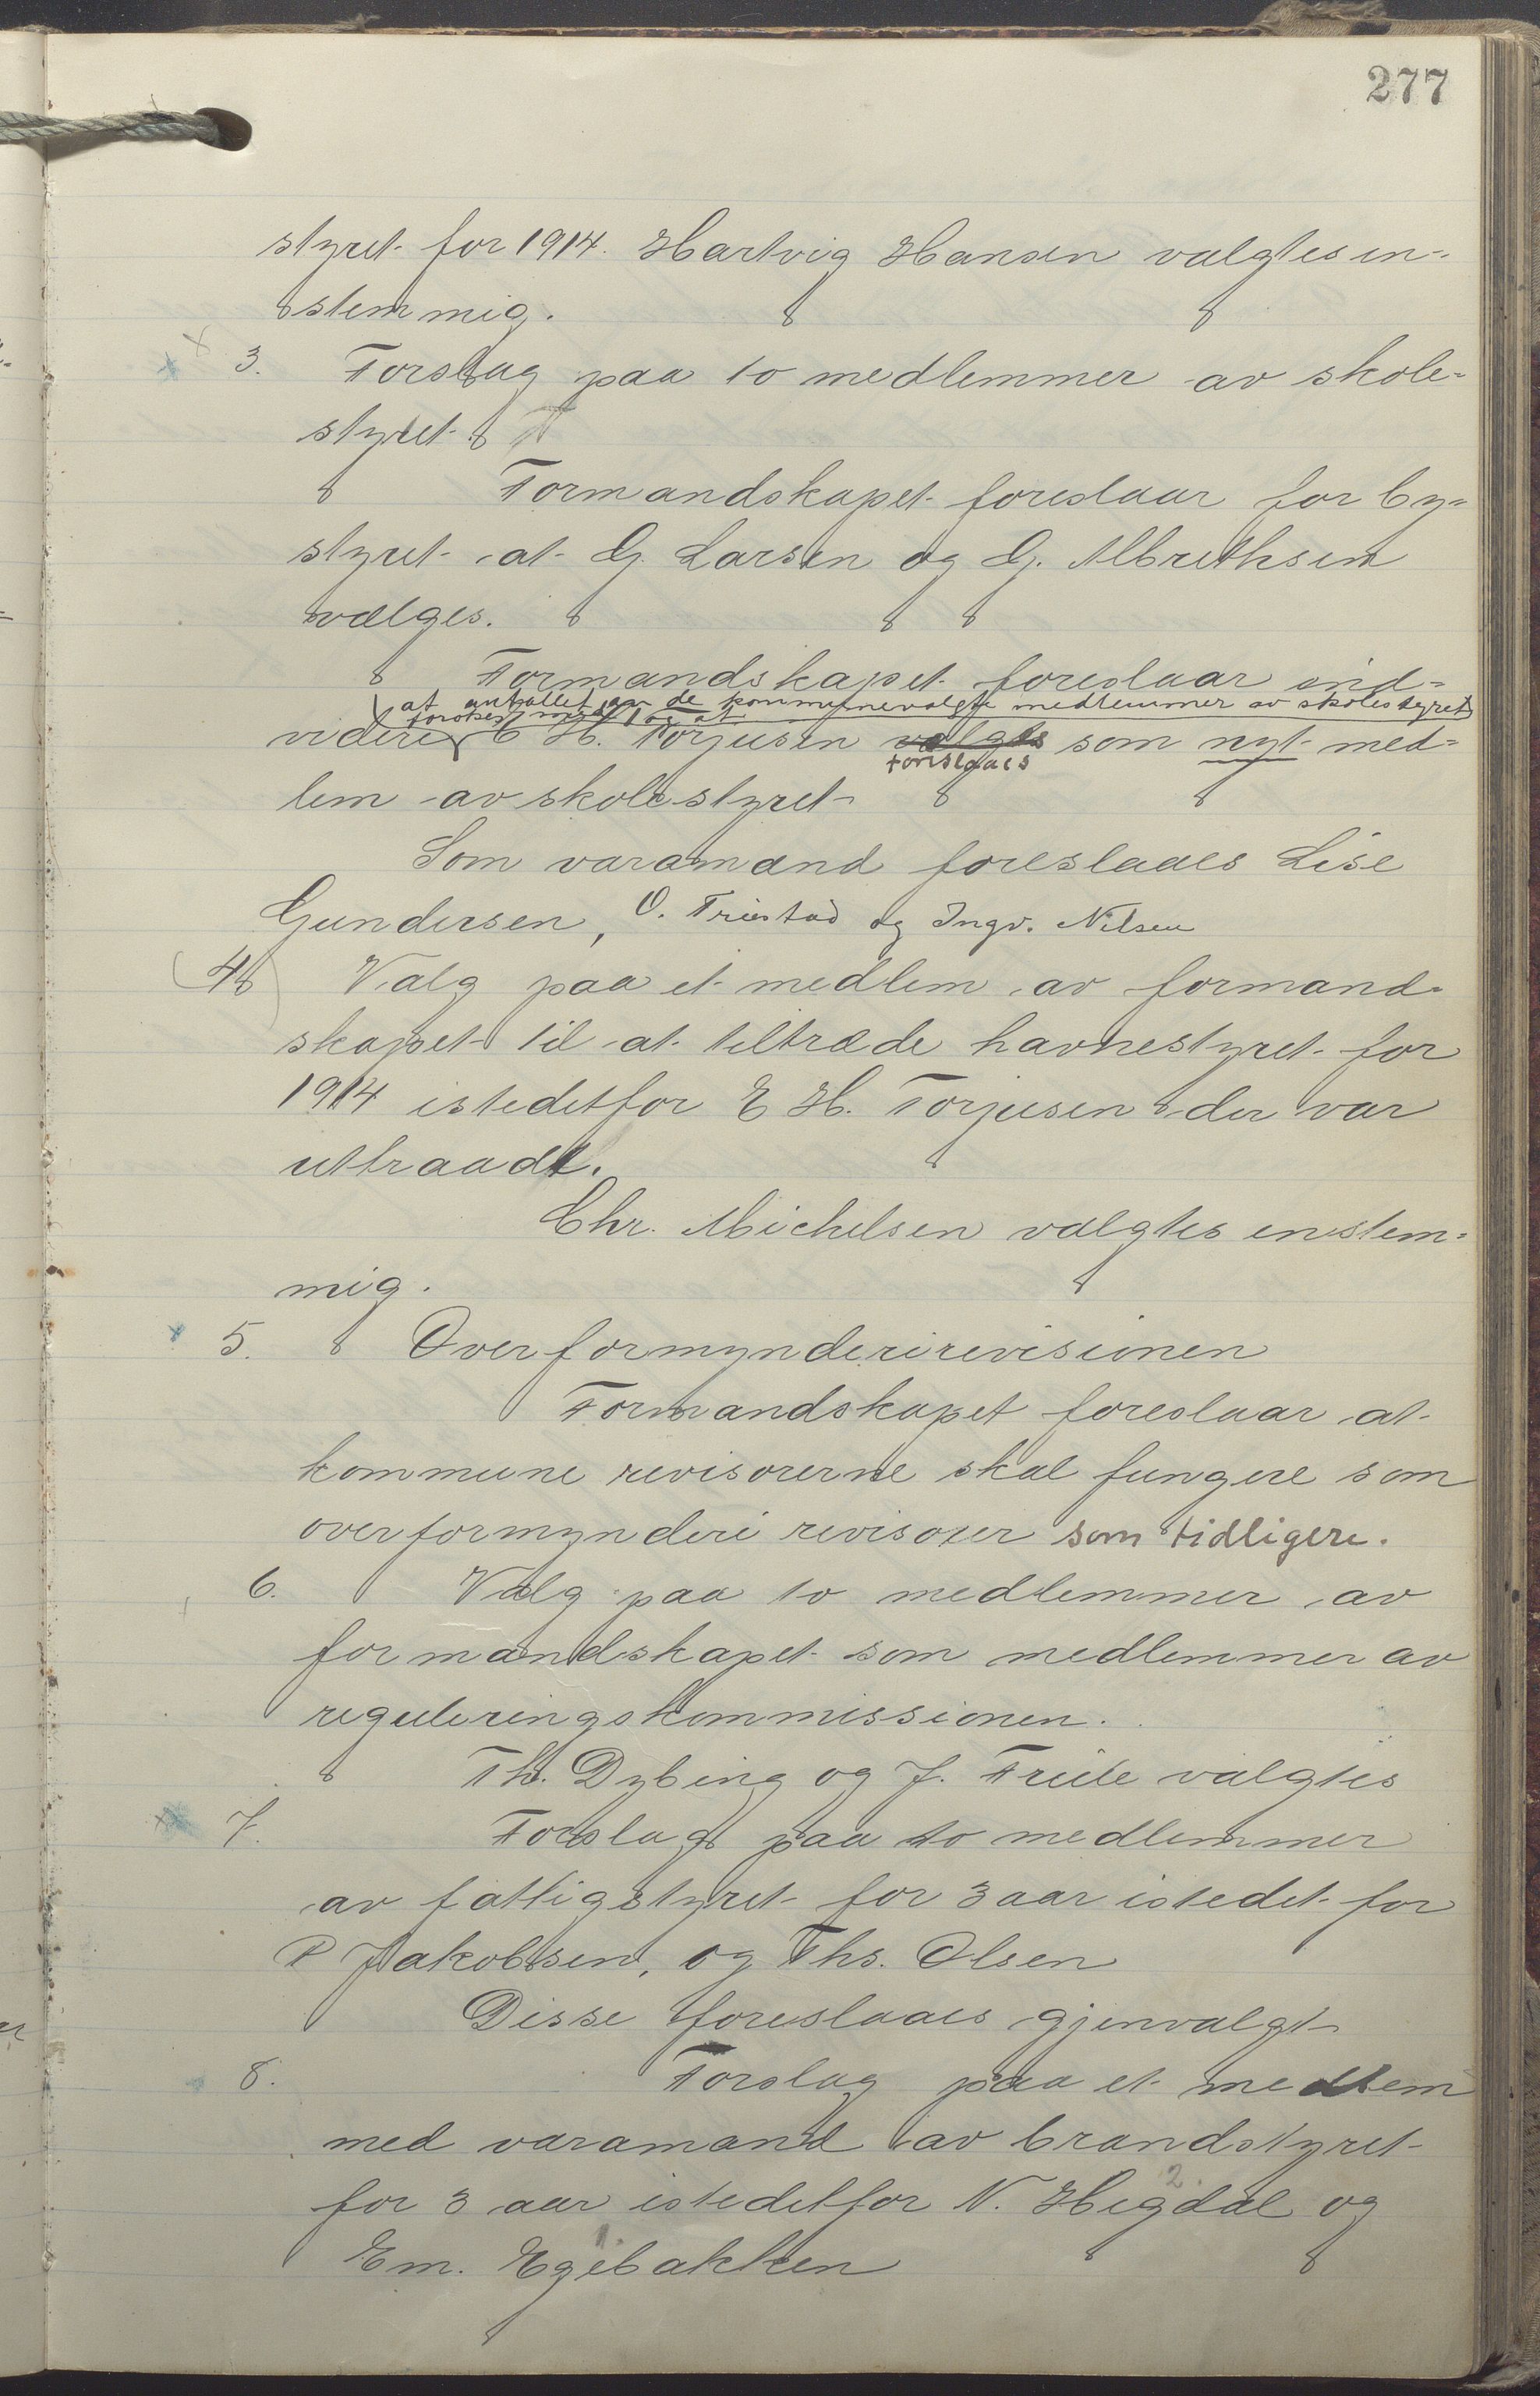 277
styret for 1914. Hartvig Hansen valgtes en-
stemmig.
3. Forslag paa to medlemmer av skole-
styret.
Formandskapet foreslaar for by-
styret at G. Larsen og G. Albrethsen
vælges.
Formandskapet foreslaar end-
at antallet av de kommunevalgte medlemmer av skolestyret
forøkes med 1 og at
videre E H. Torjusen valgtes som nyt med-
foreslaaes
lem av skolestyret
Som varamænd foreslaaes Lise
Gundersen, O. Friestad og Ingv. Nilsen
4 Valg paa et medlem av formand-
skapet til at tiltræde havnestyret for
1914 istedetfor E H. Torjusen der var
uttraadt.
Chr. Michelsen valgtes enstem-
mig.
5. Overformynderirevisionen
Formandskapet foreslaar at
kommune revisorerne skal fungere som
overformynderi revisorer som tidligere.
6. Valg paa to medlemmer av
formandskapet som medlemmer av
reguleringskommissionen.
Th. Dybing og J. Friile valgtes
7. Forslag paa to medlemmer
av fattigstyret for 3 aar istedet for
P Jakobsen, og Ths. Olsen
Disse foreslaaes gjenvalgt
8. Forslag paa et medlem
med varamand av brandstyret
for 3 aar istedetfor N. Hegdal og
2.
Em. Egebakken
1.